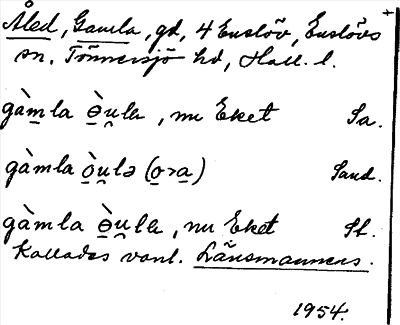 Åled, Gamla, gd, 4 Enslöv, Enslövs
sn, Tönnersjö hd, Hall. l.
gàm̲la ɵ̲̀u̲la, nu Eket Sa.
gàmla ò̲u̲lə (o̲>a̲) Sand.
gàmla ɵ̲̀u̲la, nu Eket St.
Kallades vanl. Länsmannens.
1954.